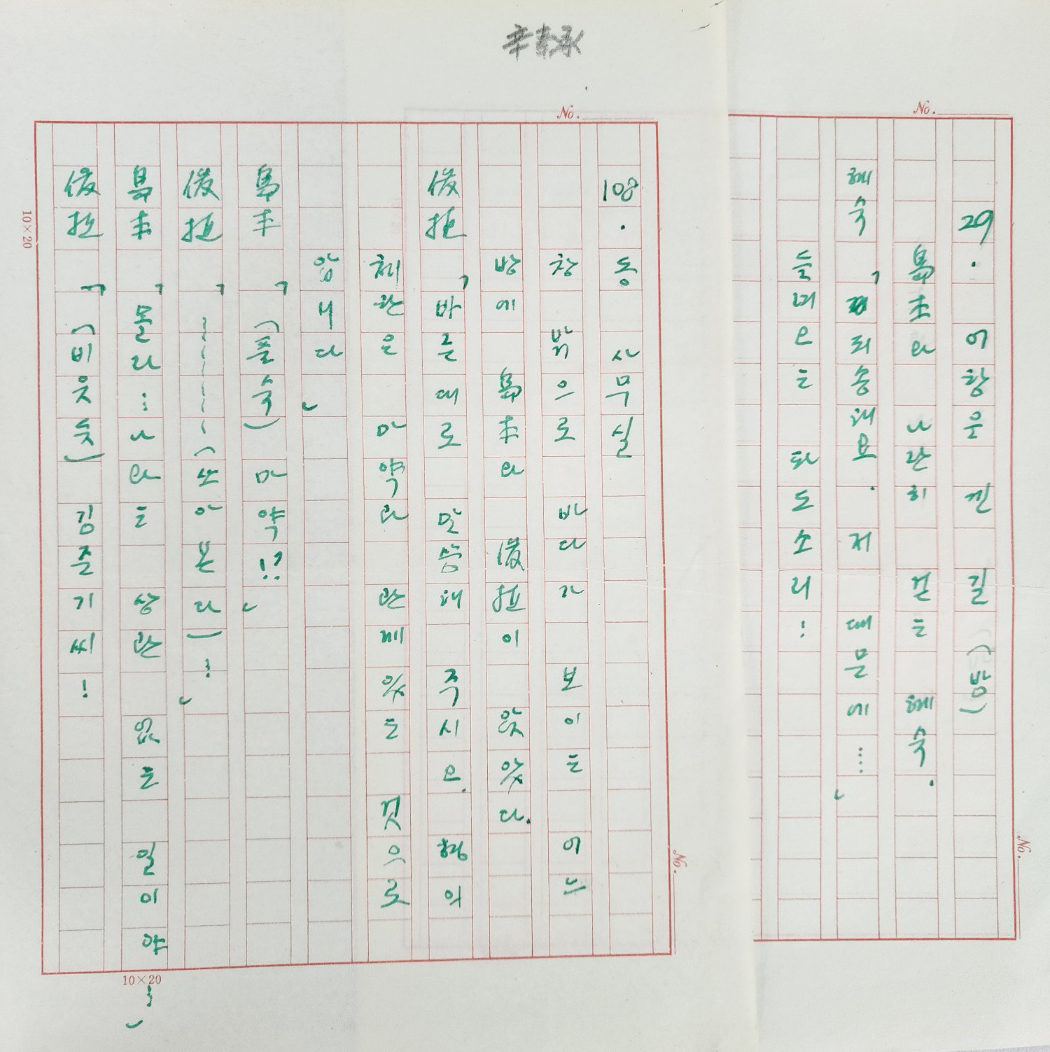 No.
29. 어항은 긴 길 (밤)
島本와 나란히 걷는 혜숙.
혜숙 「죄송해요. 저 때문에....」
들려오는 파도소리:
No.
No.
108. 동 사무실
창 밖으로 바다가 보이는 어느
방에 島本와 俊哲이 앉았다.
俊哲 「바른대로 말씀해 주시오. 형의
체한은 마약과 관계 있는 것으로
압니다」
島本 「(픔숙) 마약!?」
俊哲 「~~~~~~(쏘아본다)…」
島本 「몰라… 나와는 상관 없는 일이야…」
俊哲 「(비웃듯) 김준기씨!
10×20
10×20